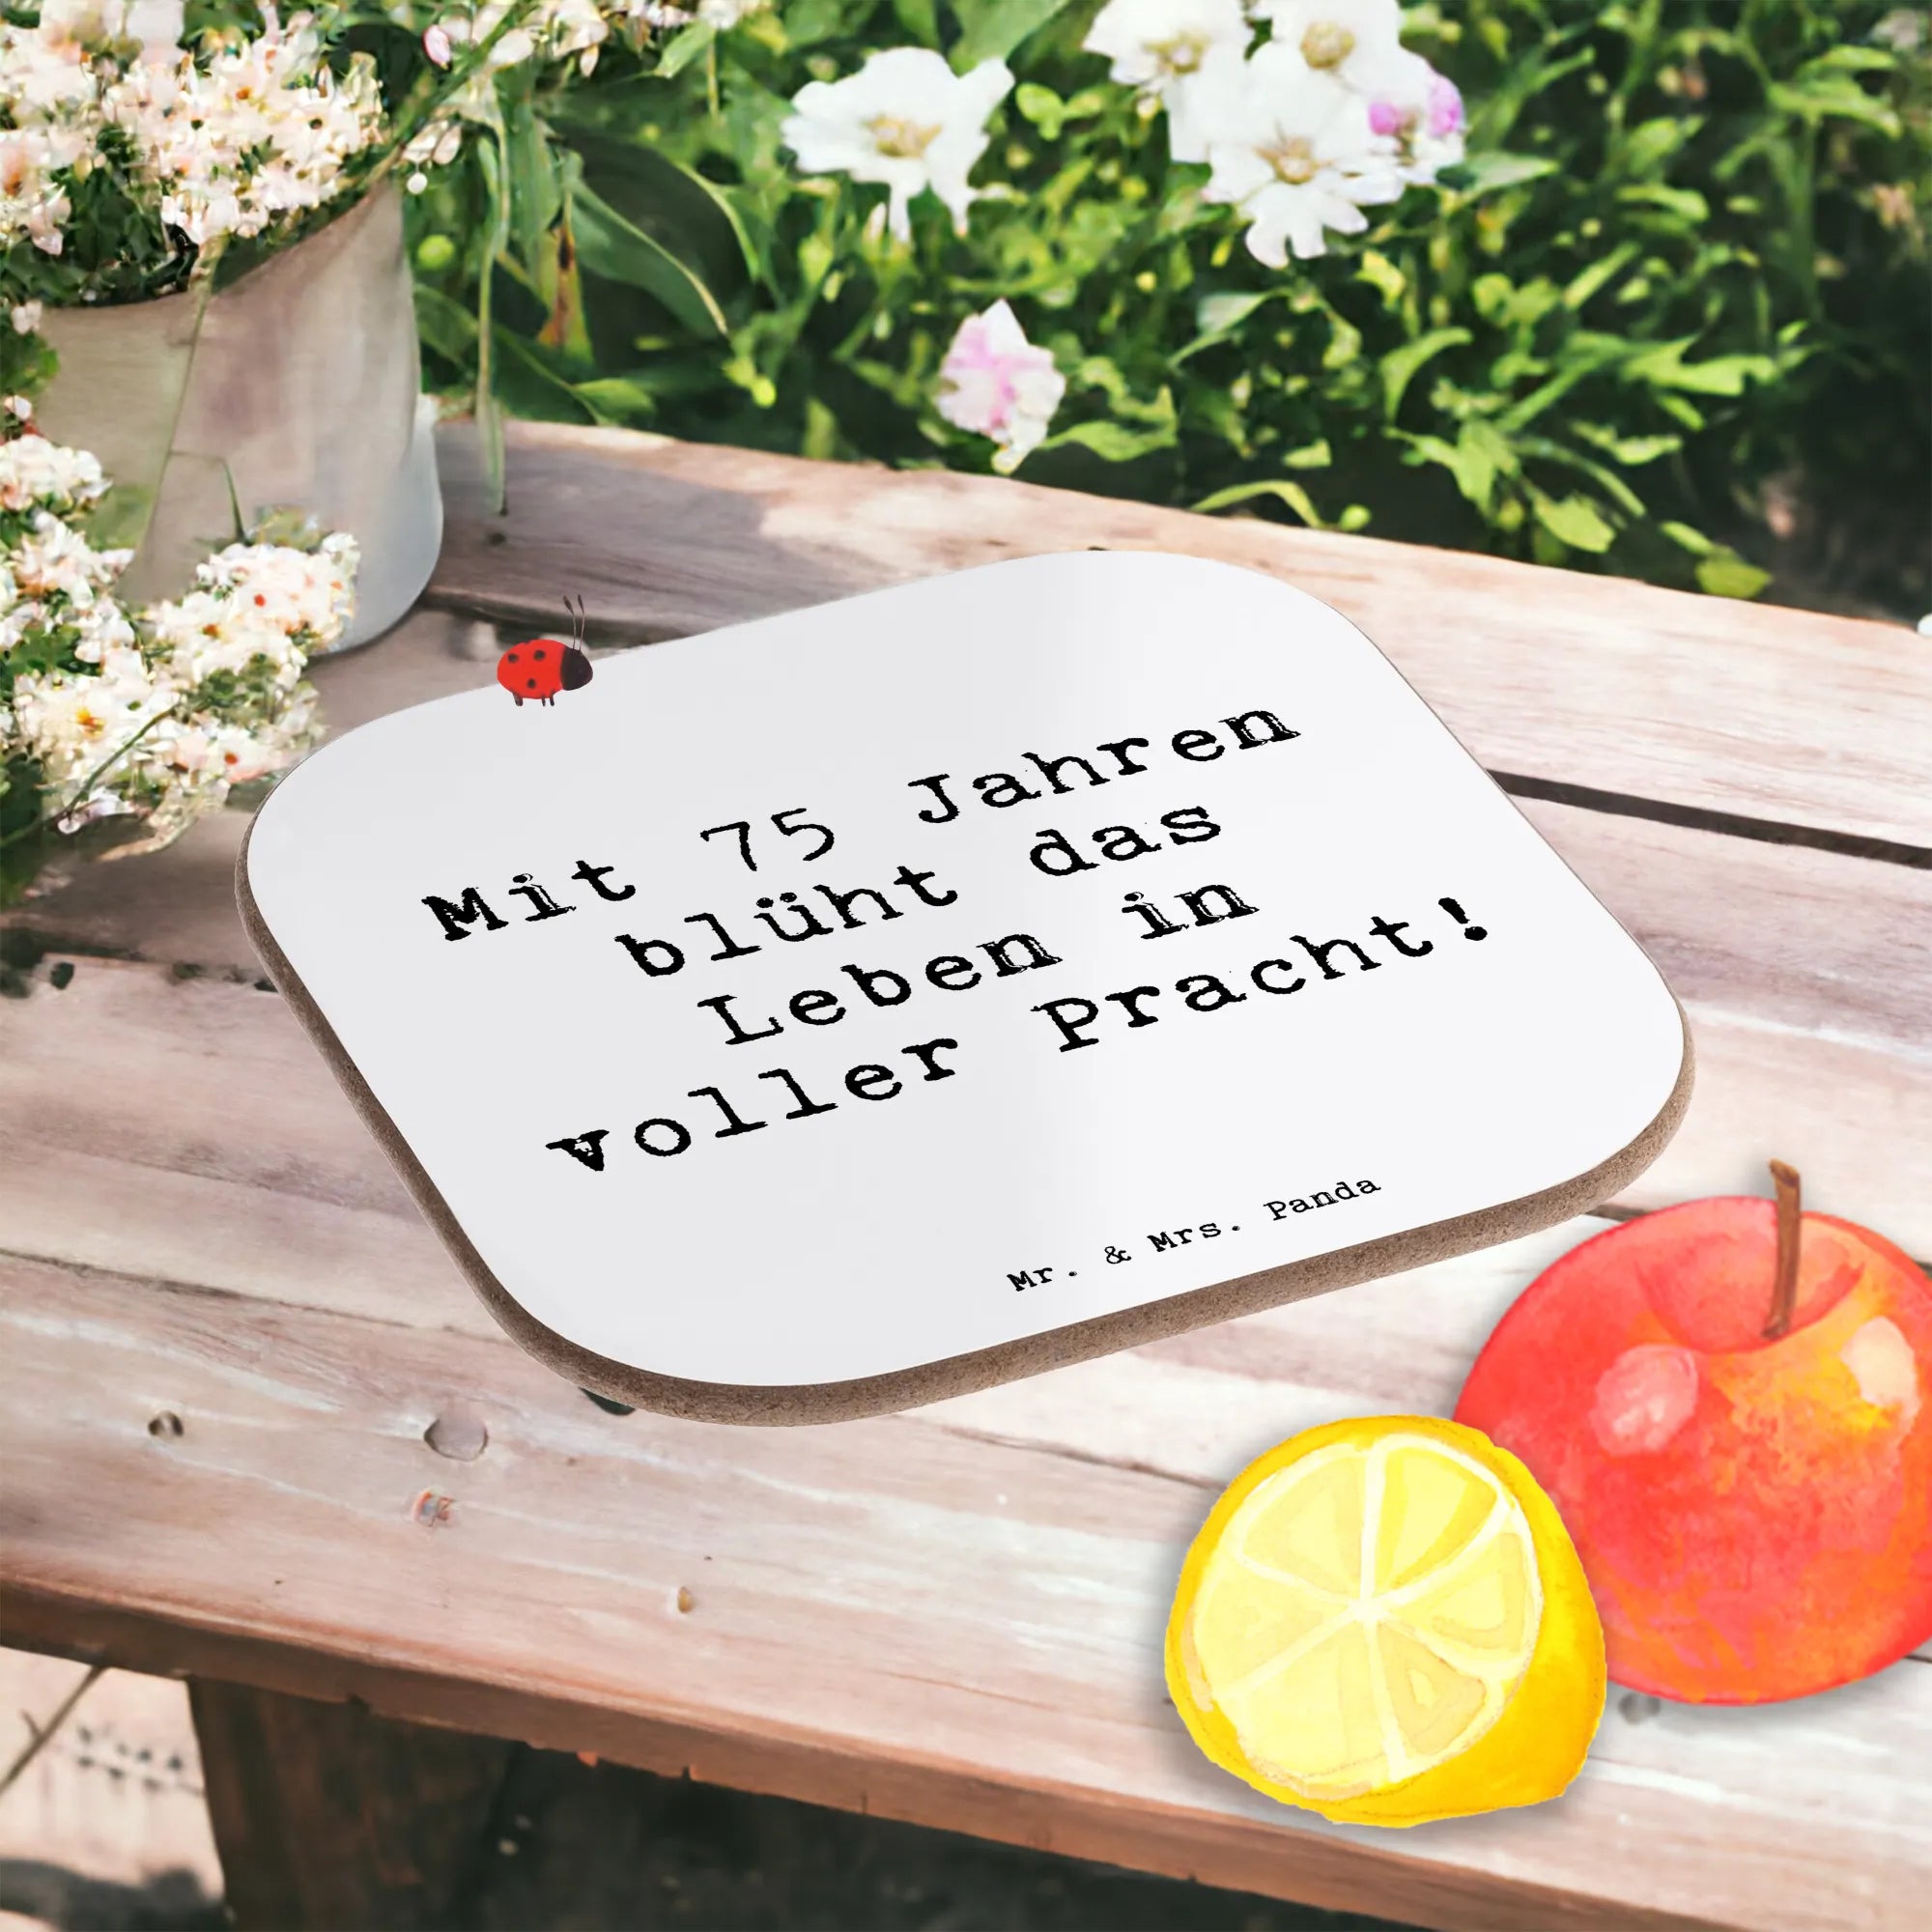 Mit 75 Jahren
blüht das
Leben in
voller Pracht!
Mr. & Mrs. Panda